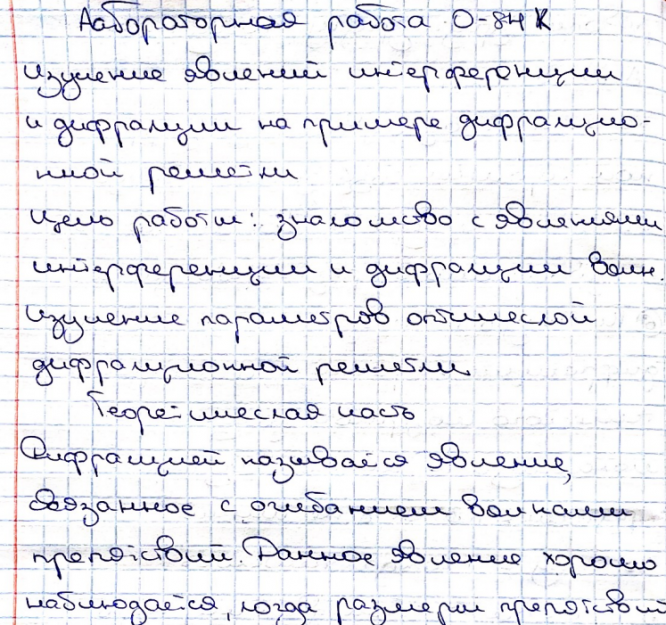 Лабораторная работа О-84К
Изучение явлений интерференции
и дифракции на примере дифракцио-
нной решетки
Цель работы: знакомство с явлениями
интерференции и дифракции волн
Изучение параметров оптической
дифракционной решетки.
Теоретическая часть
Дифракцией называется явление,
связанное с огибанием волнами
препятствий. Данное явление хорошо
наблюдается, когда размеры препятствий